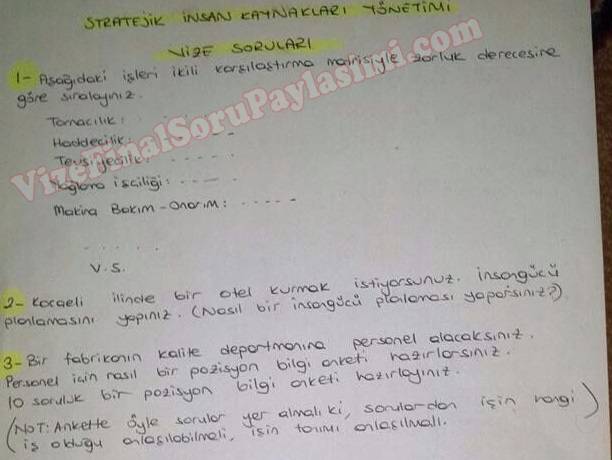 STRATEJİK İNSAN KAYNAKLARI YÖNETİMİ
VİZE SORULARI
1- Aşağıdaki işleri ikili karşılaştırma matrisiyle zorluk derecesine
göre sıralayınız.
Tornacılık:
Haddecilik:
Tevsiyecilik:
Yağlama işçiliği:
Makina Bakım-Onarım:
V.S.
2- Kocaeli ilinde bir otel kurmak istiyorsunuz. İnsangücü
planlamasını yapınız. (Nasıl bir insangücü planlaması yaparsınız?)
3- Bir fabrikanın kalite departmanına personel alacaksınız.
Personel için nasıl bir pozisyon bilgi anketi hazırlarsınız.
10 soruluk bir pozisyon bilgi anketi hazırlayınız.
(NOT: Ankette öyle sorular yer almalı ki, sorulardan işin hangi
iş olduğu anlaşılabilmeli, işin tanımı anlaşılmalı.)
VizeFinalSoruPaylasimi.com